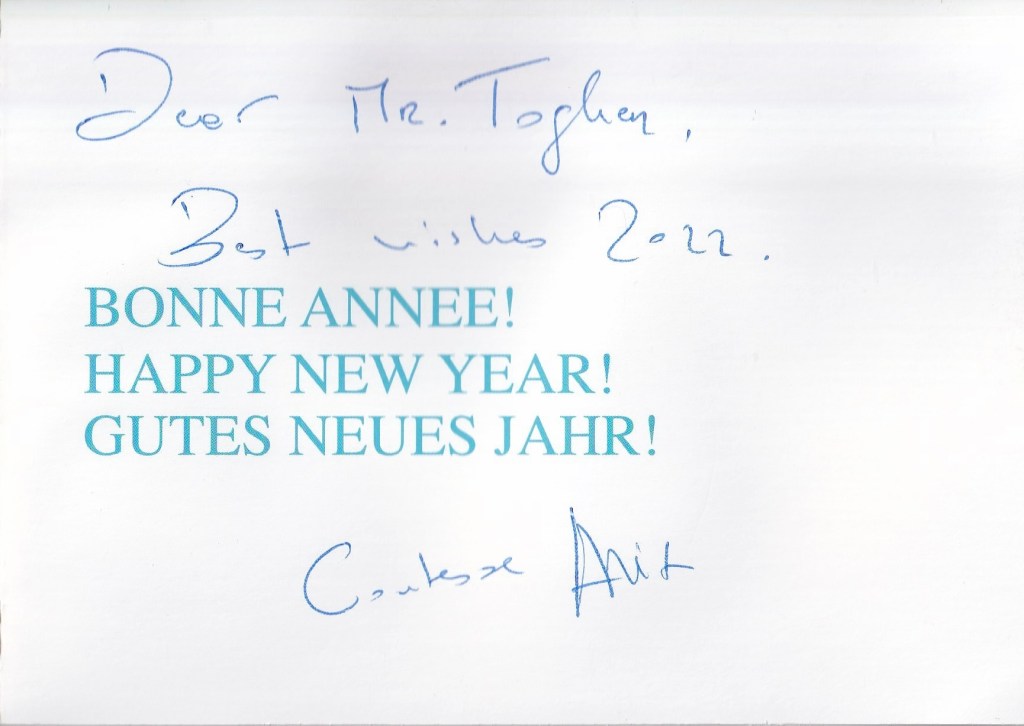 Dear Mr. Toghen,
Best wishes 2022.
BONNE ANNEE!
HAPPY NEW YEAR!
GUTES NEUES JAHR!
Comtesse